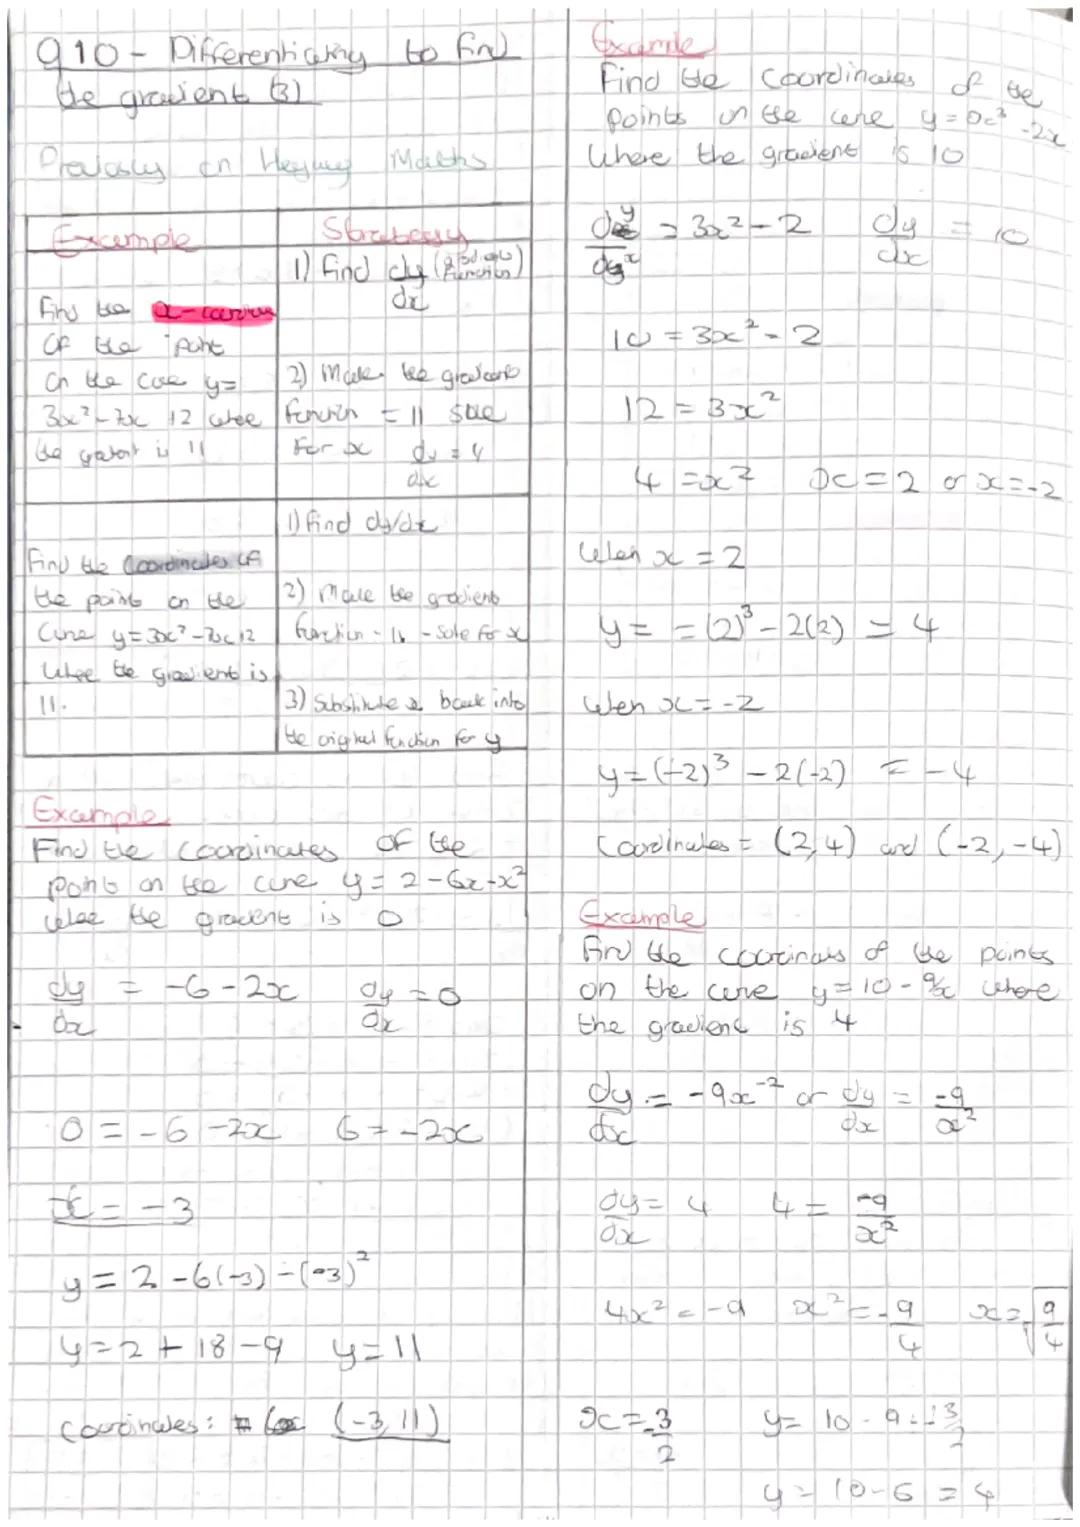 Q10 - Differentiating to find
the gradient (3)
Previously on Hegarty Maths
Example
Strategy
Find the x-
of the point
on the curve y=
3x² - 7x 12 where
the gradient is 11
1) Find dy/dx (gradient function)
2) Make the gradient
function = 11 solve
for x dy/dx = 4
Find the Coordinates of
the point on the
Curve y=3x²-7x 12
where the gradient is
11.
1) Find dy/dx
2) Make the gradient
function = 11 - Solve for x
3) Substitute x back into
the original function for y
Example
Find the coordinates of the
point on the curve y = 2 - 6x - x²
where the gradient is 0
dy/dx = -6 - 2x dy/dx = 0
0 = -6 - 2x 6 = -2x
x = -3
y = 2 - 6(-3) - (-3)²
y = 2 + 18 - 9 y = 11
coordinates: (-3, 11)
Example
Find the Coordinates of the
points on the curve y = x³ - 2x
Where the gradient is 10
dy/dx = 3x² - 2 dy/dx = 10
10 = 3x² - 2
12 = 3x²
4 = x² x = 2 or x = -2
When x = 2
y = = (2)³ - 2(2) = 4
When x = -2
y = (-2)³ - 2(-2) = -4
Coordinates = (2,4) and (-2,-4)
Example
Find the coordinates of the points
on the curve y = 10 - 9/x where
the gradient is 4
dy/dx = -9x⁻² or dy/dx = -9/x²
dy/dx = 4 4 = -9/x²
4x² = -9 x² = -9/4 x = √9/4
x = 3/2 y = 10 - 9 ÷ 3/2
y = 10 - 6 = 4